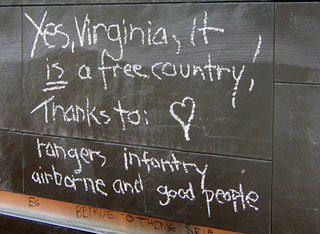 Yes, Virginia, it
is a free country!
Thanks to: ♡
rangers infantry
airborne and good people
EG BE TRUE TO THINE SELF